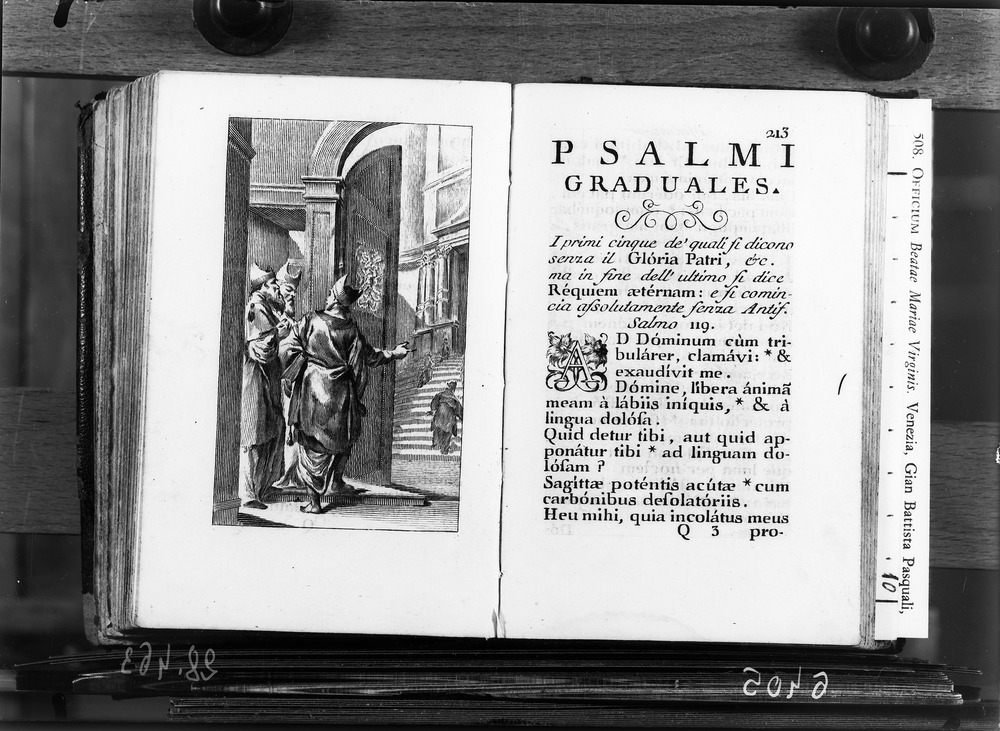 213
PSALMI
GRADUALES.
I primi cinque de' quali ſi dicono
senza il Glória Patri, &c.
ma in fine dell' ultimo ſi dice
Réquiem ætérnam: e ſi comin-
cia aſsolutamente ſenza Antiſ.
Salmo 119.
AD Dóminum cùm tri-
bulárer, clamávi: * &
exaudívit me.
Dómine, líbera ánimã
meam à lábiis iníquis, * & à
lingua dolóſa.
Quid detur tibi, aut quid ap-
ponátur tibi * ad linguam do-
lóſam?
Sagittæ poténtis acútæ * cum
carbónibus deſolatóriis.
Heu mihi, quia incolátus meus
Q 3 pro-
508. OFFICIUM Beatae Mariae Virginis. Venezia, Gian Battista Pasquali,
10
28.463
6405